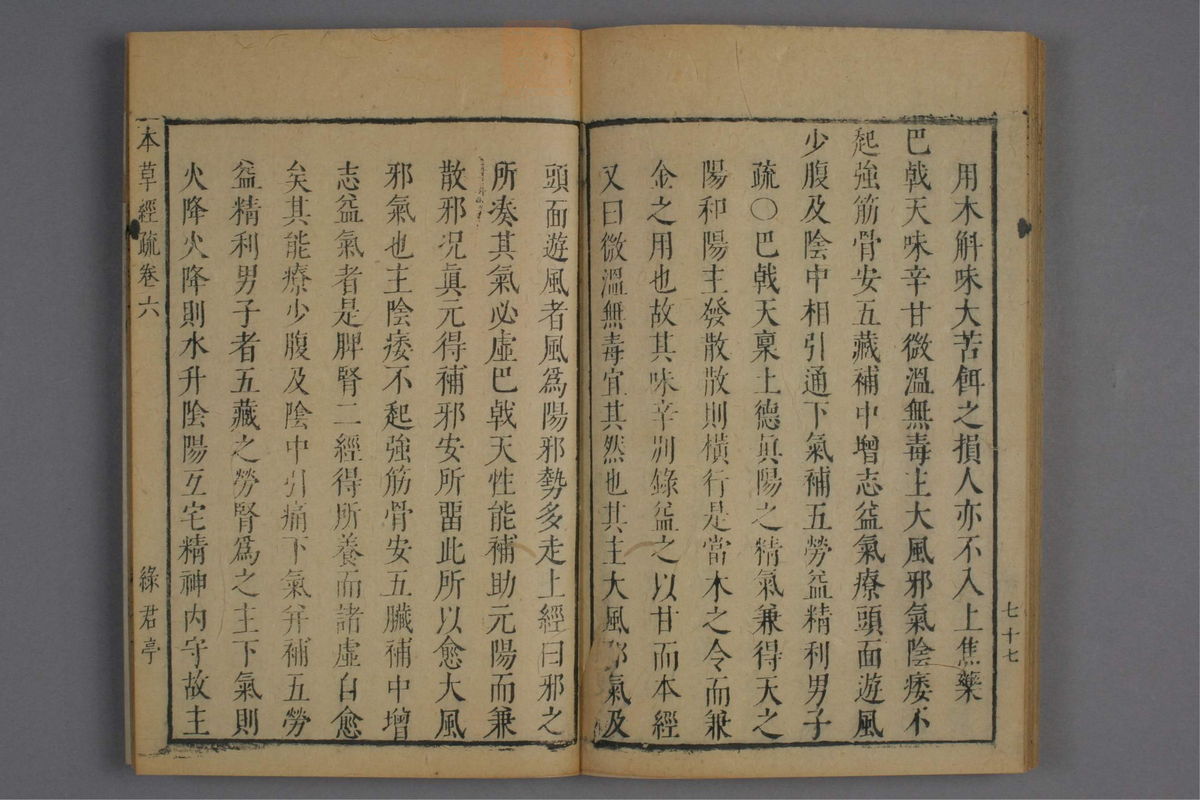 用木斛味大苦餌之損人亦不入上焦藥
巴戟天味辛甘微溫無毒主大風邪氣陰痿不
起強筋骨安五藏補中增志益氣療頭面遊風
少腹及陰中相引通下氣補五勞益精利男子
疏○巴戟天稟土德眞陽之精氣兼得天之
陽和陽主發散散則橫行是當木之令而兼
金之用也故其味辛別錄益之以甘而本經
又曰微溫無毒宜其然也其主大風邪氣及
七十七
頭面遊風者風爲陽邪勢多走上經曰邪之
所湊其氣必虛巴戟天性能補助元陽而兼
散邪况眞元得補邪安所畱此所以愈大風
邪氣也主陰痿不起強筋骨安五臟補中增
志益氣者是脾腎二經得所養而諸虛自愈
矣其能療少腹及陰中引痛下氣并補五勞
益精利男子者五藏之勞腎爲之主下氣則
火降火降則水升陰陽互宅精神内守故主
本草經疏卷六
綠君亭